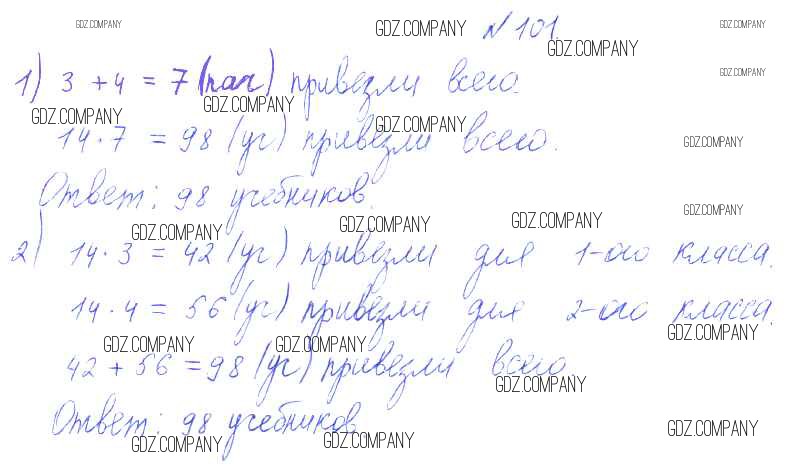 GDZ.COMPANY GDZ.COMPANY № 101. GDZ.COMPANY
GDZ.COMPANY
1) 3 + 4 = 7 (пач) привезли всего. GDZ.COMPANY
GDZ.COMPANY GDZ.COMPANY GDZ.COMPANY
14 · 7 = 98 (уч) привезли всего. GDZ.COMPANY
Ответ: 98 учебников. GDZ.COMPANY
GDZ.COMPANY GDZ.COMPANY GDZ.COMPANY
2) 14 · 3 = 42 (уч) привезли для 1-ого класса.
14 · 4 = 56 (уч) привезли для 2-ого класса.
GDZ.COMPANY GDZ.COMPANY GDZ.COMPANY
42 + 56 = 98 (уч) привезли всего
GDZ.COMPANY
Ответ: 98 учебников
GDZ.COMPANY GDZ.COMPANY GDZ.COMPANY